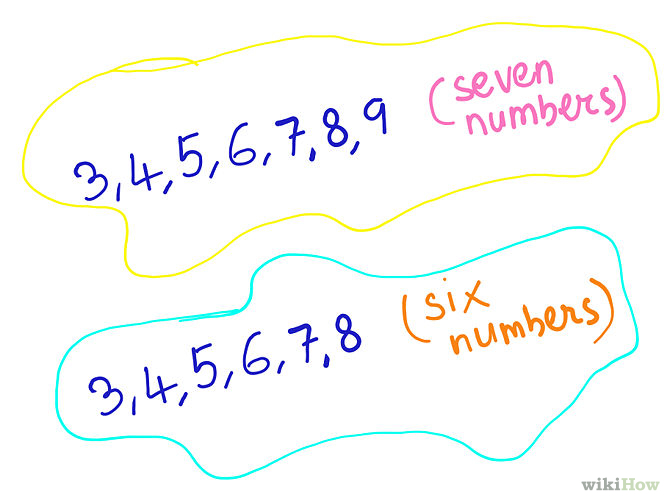 3,4,5,6,7,8,9
(seven
numbers)
3,4,5,6,7,8
(six
numbers)
wikiHow